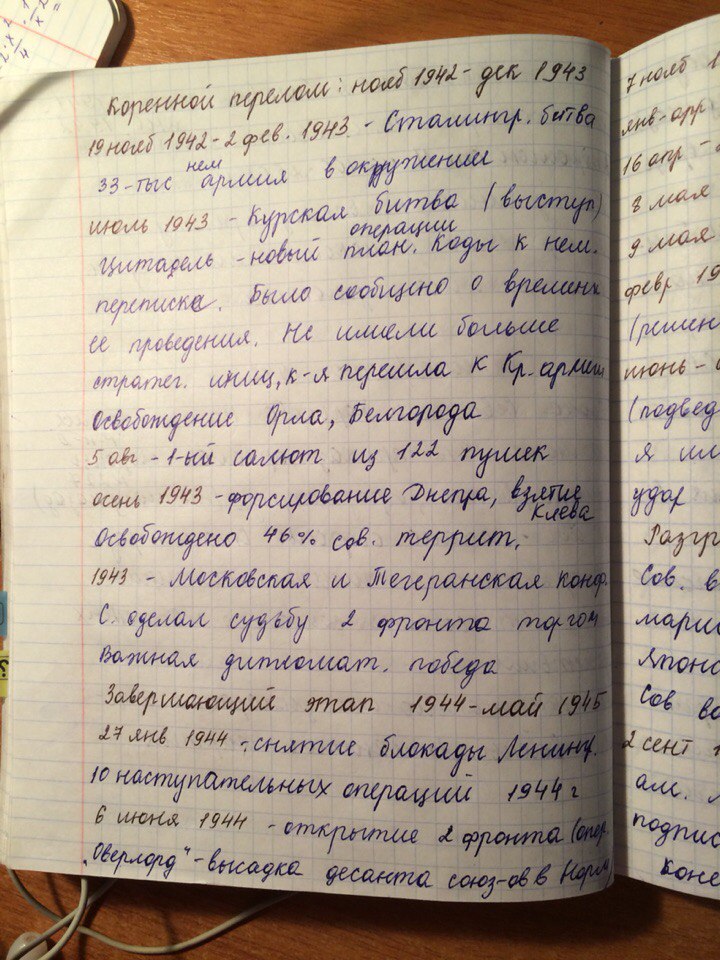 Коренной перелом: нояб 1942 - дек 1943
19 нояб 1942 - 2 фев. 1943 - Сталингр. битва
33-тыс нем армия в окружении
июль 1943 - Курская битва (выступ)
Цитадель - новый план операции. Коды к нем.
переписке. Было сообщено о времени
ее проведения. Не имели больше
стратег. иниц, к-я перешла к Кр. армии
Освобождение Орла, Белгорода
5 авг - 1-ый салют из 122 пушек
осень 1943 - форсирование Днепра, взятие Киева
Освобождено 46% сов. террит.
1943 - Московская и Тегеранская конф.
С. сделал судьбу 2 фронта торгом
Важная дипломат. победа
Завершающий этап 1944 - май 1945
27 янв 1944 - снятие блокады Ленингр.
10 наступательных операций 1944 г
6 июня 1944 - открытие 2 фронта (опер.
"Оверлорд" - высадка десанта союз-ов в Норм)
7 нояб 1
янв-апр
16 апр -
8 мая
9 мая
февр 19
(решен
июнь -
(подвед
я
удар
Разгр
Сов. в
Японс
Сов во
2 сент 1
ам.
подпис
коне